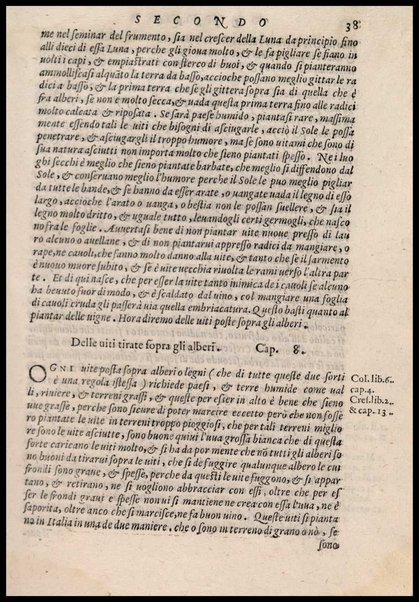 SECONDO
38
me nel seminar del frumento, sia nel crescer della Luna da principio fino
alli dieci di essa Luna, perche gli gioua molto, & le fa pigliare se siano in
uolti i capi, & empiastrati con sterco di buoi, & quando si pianteranno
ammollifcasi alquãto la terra da basso, accioche possano meglio gittar le ra
dici a basso, & la prima terra che se gli gittera sopra sia di quella che è
fra alberi, se non e molto secca, & uada questa prima terra fino alle radici
molto calcata & riposata. Se sarà paese humido, piantasi rare, massima
mente essendo tali le uiti che bisogni di asciugarle, acciò il Sole le possa
penetrare, & asciugargli il troppo humore, ma se sono uitami che sono di
sua natura asciutti non importa molto che sieno piantati spesso. Nei luo
ghi secchi è meglio che sieno piantate barbate, che meglio si diffendono dal
Sole, & conseruano meglio l'humore perche il Sole le puo meglio pigliar
da tutte le bande, & se hanno da esser arate, o uangate uada il legno di esso
largo, accioche l'arato o uanga, o bestia non le possan suellere, & sia il
legno molto dritto, & uguale tutto, leuandogli certi germogli, che nasco
no fra le foglie. Auuertasi bene di non piantar uite nuoue presso di lau
ro alcuno o auellane, & di non piantarui appresso radici da mangiare, o
rape, ne cauoli, che fanno molto danno alla uite, & tanto che se il sarmento
è nuouo muore subito, & se è uite uecchia riuolta le rami uerso l'altra par
te. Et di qui nasce, che per esser la uite tanto inimica de i cauoli se alcuno
ha beuuto fuor di modo, & è scaldato dal uino, col mangiare una foglia
di cauoli cruda gli passerà uia quella embriacatura. Questo basti quanto al
piantar delle uigne. Hora diremo delle uiti poste sopra gli alberi.
Delle uiti tirate sopra gli alberi. Cap. 8.
OGNI uite posta sopra alberi o legni ( che di tutte queste due sorti
è una regola istessa ) richiede paesi, & terre humide come ual
li, riuiere, & terreni grassi, & queste per esser in alto è bene che sieno
uue grasse, perche sono sicure di poter marcire eccetto però che non fosse
ro piantate le uite in terreni troppo pioggiosi, che per tali terreni miglio
re sono le uite asciutte, sono buone quiui l'uua grossa bianca che di questa
sorte caricano le uiti molto, & si ha da por mente che nõ tutti gli alberi so
no buoni da tirarui sopra le uiti, che si de fuggire qualunque albero le cui
frondi sono graue, & spesse, perche da questi le uite fuggono, & si appar
tano, & retirano, ne si uogliono abbracciar con essi, oltre che per es
ser le frondi graui e spesse non ui si mantiene ne crea con essa l'uua, ne è
saporita, oltre anco che si marcisce, ne fa buon uino. Queste uiti si pianta
no in Italia in una de due maniere, che o sono in terreno di grano o nò, se
sono
Col. lib. 6.
cap. 4.
Cref. lib. 2.
& cap. 13.